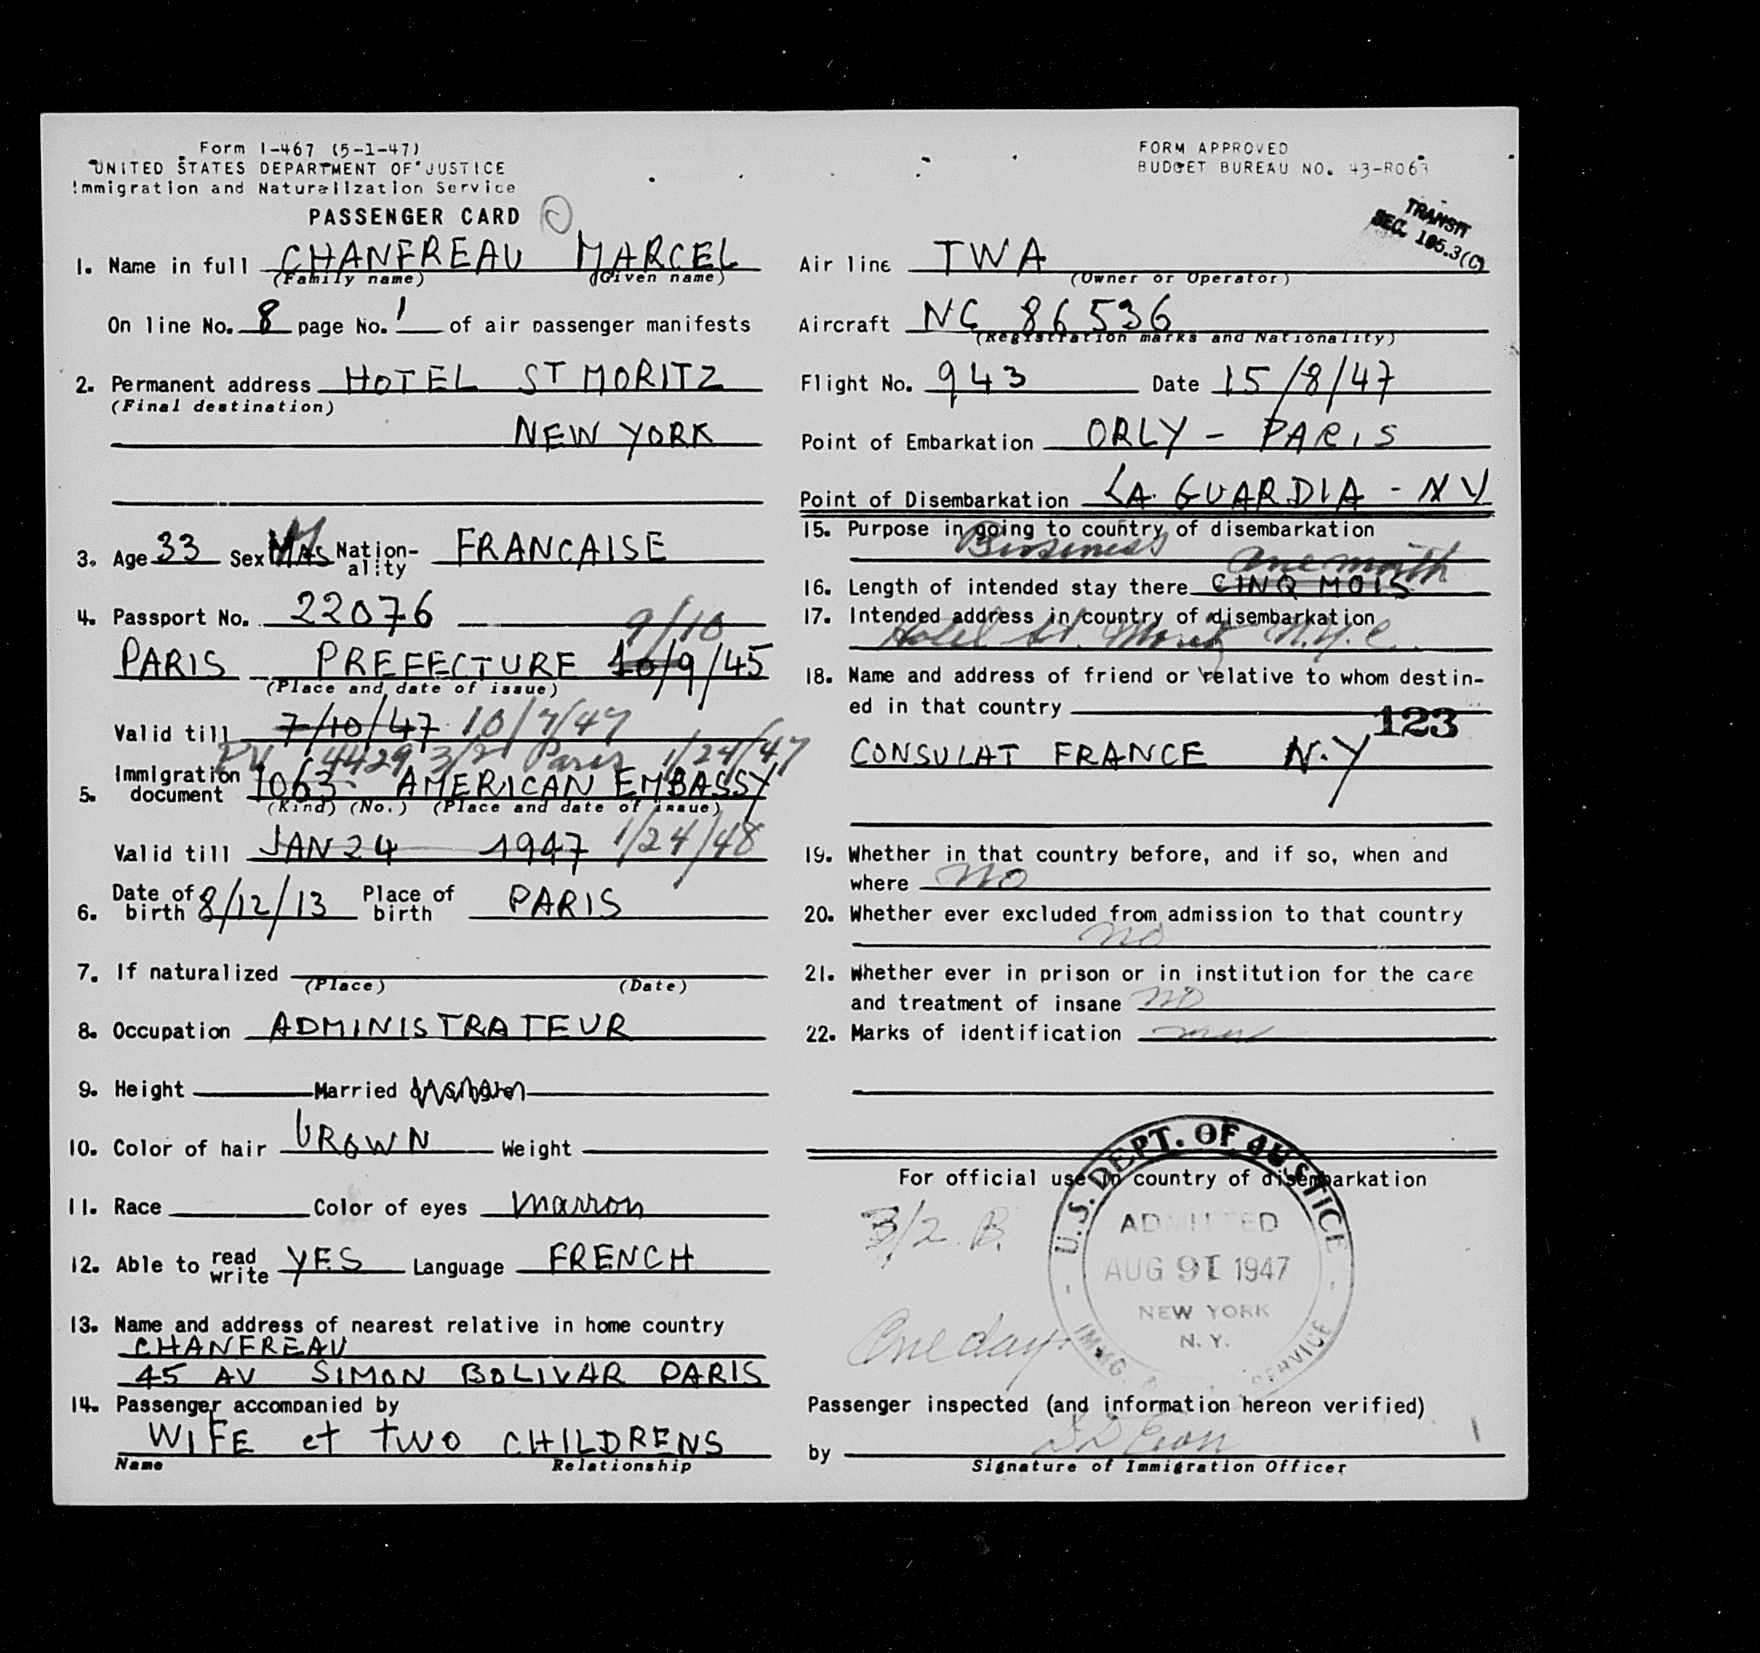 Form I-467 (5-1-47)
UNITED STATES DEPARTMENT OF JUSTICE
Immigration and Naturalization Service
PASSENGER CARD
C
1. Name in full CHANFREAU MARCEL
(Family name) (Given name)
On line No. 8 page No. 1 of air passenger manifests
2. Permanent address HOTEL ST MORITZ
(Final destination)
NEW YORK
3. Age 33 Sex MAS M Nationality FRANCAISE
4. Passport No. 22076
9/10
PARIS PREFECTURE 10/9/45
(Place and date of issue)
Valid till 7/10/47 10/7/47
PV 4429 3/2 Paris 1/24/47
5. Immigration document 1063 AMERICAN EMBASSY
(Kind) (No.) (Place and date of issue)
Valid till JAN 24 1947 1/24/48
6. Date of birth 8/12/13 Place of birth PARIS
7. If naturalized
(Place) (Date)
8. Occupation ADMINISTRATEUR
9. Height Married
10. Color of hair BROWN Weight
11. Race Color of eyes marron
12. Able to read write YES Language FRENCH
13. Name and address of nearest relative in home country
CHANFREAU
45 AV SIMON BOLIVAR PARIS
14. Passenger accompanied by
WIFE et TWO CHILDRENS
Name Relationship
FORM APPROVED
BUDGET BUREAU NO. 43-R063
TRANSIT
SEC. 105.3(C)
Air line TWA
(Owner or Operator)
Aircraft NC 86536
(Registration marks and Nationality)
Flight No. 943 Date 15/8/47
Point of Embarkation ORLY - PARIS
Point of Disembarkation LA GUARDIA - NY
15. Purpose in going to country of disembarkation
Business
One month
16. Length of intended stay there CINQ MOIS
17. Intended address in country of disembarkation
Hotel St. Moritz N.Y.C.
18. Name and address of friend or relative to whom destin-
ed in that country
123
CONSULAT FRANCE N.Y
19. Whether in that country before, and if so, when and
where no
20. Whether ever excluded from admission to that country
no
21. Whether ever in prison or in institution for the care
and treatment of insane no
22. Marks of identification
For official use in country of disembarkation
3/2 B.
U.S. DEPT. OF JUSTICE
ADMITTED
AUG 1947
NEW YORK
N. Y.
IMMIG. SERVICE
One day
Passenger inspected (and information hereon verified)
by
Signature of Immigration Officer